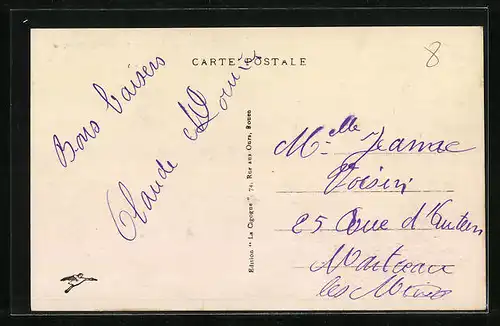 CARTE POSTALE
8
Bons baisers
Claude Louis
Edition "La Cigogne" 74, Rue aux Ours, Rouen
Mlle Jeanne
Voisin
25 Rue d'Autun
Montceau
les Mines